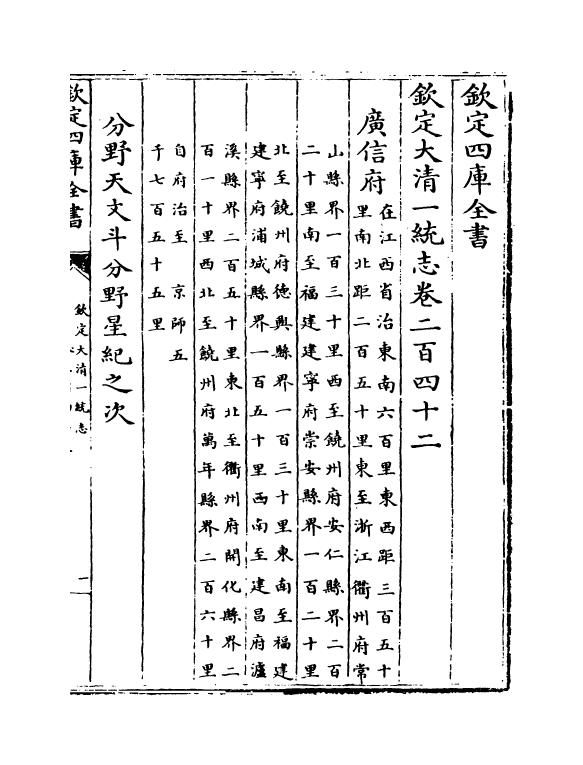 欽定四庫全書
欽定大清一統志卷二百四十二
廣信府
在江西省治東南六百里東西距三百五十
里南北距二百五十里東至浙江衢州府常
山縣界一百三十里西至饒州府安仁縣界二百
二十里南至福建建寧府崇安縣界一百二十里
北至饒州府德興縣界一百三十里東南至福建
建寧府浦城縣界一百五十里西南至建昌府瀘
溪縣界二百五十里東北至衢州府開化縣界二
百一十里西北至饒州府萬年縣界二百六十里
自府治至 京師五
千七百五十五里
分野天文斗分野星紀之次
欽定四庫全書
欽定大清一統志